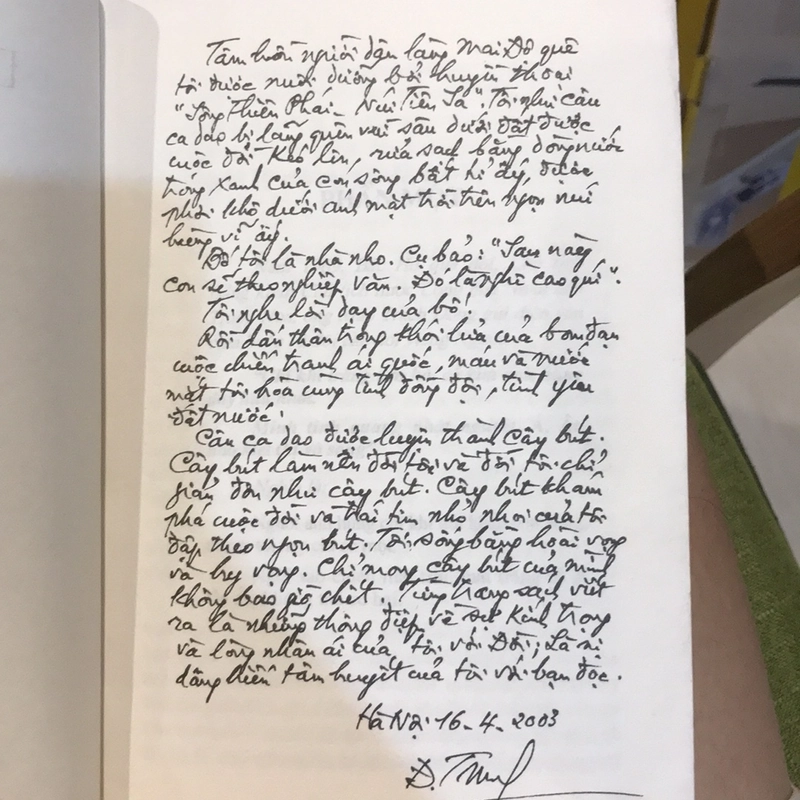 Tâm hồn người dân làng Mai Độ quê
tôi được nuôi dưỡng bởi huyền thoại
"Sông Thiên Phái - Núi Tiên Sa". Tôi như câu
ca dao bị lãng quên vùi sâu dưới đất được
cuộc đời kéo lên, rửa sạch bằng dòng nước
trong xanh của con sông bất hủ ấy, được
phơi khô dưới ánh mặt trời trên ngọn núi
hùng vĩ ấy.
Bố tôi là nhà nho. Cụ bảo: "Sau này
con sẽ theo nghiệp văn. Đó là nghề cao quí".
Tôi nghe lời dạy của bố!
Rồi dấn thân trong khói lửa của bom đạn
cuộc chiến tranh ái quốc, máu và nước
mắt tôi hòa cùng tình đồng đội, tình yêu
đất nước.
Câu ca dao được luyện thành cây bút.
Cây bút làm nên đời tôi và đời tôi chỉ
giản đơn như cây bút. Cây bút khám
phá cuộc đời và trái tim nhỏ nhoi của tôi
đập theo ngọn bút. Tôi sống bằng hoài vọng
và hy vọng. Chỉ mong cây bút của mình
không bao giờ chết. Từng trang sách viết
ra là những thông điệp về sự kính trọng
và lòng nhân ái của tôi với Đời; Là sự
dâng hiến tâm huyết của tôi với bạn đọc.
Hà Nội 16-4-2003